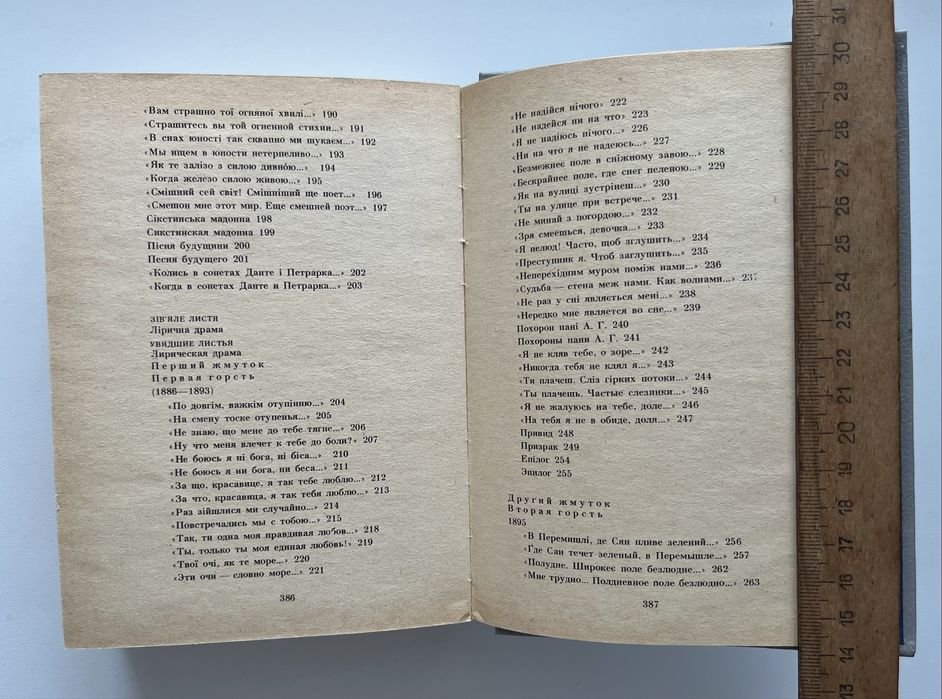 «Вам страшно тої огняної хвилі...» 190
«Страшитесь вы той огненной стихии...» 191
«В снах юності так сквапно ми шукаєм...» 192
«Мы ищем в юности нетерпеливо...» 193
«Як те залізо з силою дивною...» 194
«Когда железо силою живою...» 195
«Смішний сей світ! Смішніший ще поет...» 196
«Смешон мне этот мир. Еще смешней поэт...» 197
Сікстинська мадонна 198
Сикстинская мадонна 199
Пісня будущини 200
Песня будущего 201
«Колись в сонетах Данте і Петрарка...» 202
«Когда в сонетах Данте и Петрарка...» 203
ЗІВ'ЯЛЕ ЛИСТЯ
Лірична драма
УВЯДШИЕ ЛИСТЬЯ
Лирическая драма
Перший жмуток
Первая горсть
(1886—1893)
«По довгім, важкім отупінню...» 204
«На смену тоске отупенья...» 205
«Не знаю, що мене до тебе тягне...» 206
«Ну что меня влечет к тебе до боли?» 207
«Не боюсь я ні бога, ні біса...» 210
«Не боюсь я ни бога, ни беса...» 211
«За що, красавице, я так тебе люблю...» 212
«За что, красавица, я так тебя люблю...» 213
«Раз зійшлися ми случайно...» 214
«Повстречались мы с тобою...» 215
«Так, ти одна моя правдивая любов...» 218
«Ты, только ты моя единая любовь!» 219
«Твої очі, як те море...» 220
«Эти очи — словно море...» 221
386
«Не надійся нічого» 222
«Не надейся ни на что» 223
«Я не надіюсь нічого...» 226
«Ни на что я не надеюсь...» 227
«Безмежнеє поле в сніжному завою...» 228
«Бескрайнее поле, где снег пеленою...» 229
«Як на вулиці зустрінеш...» 230
«Ты на улице при встрече...» 231
«Не минай з погордою...» 232
«Зря смеешься, девочка...» 233
«Я нелюд! Часто, щоб зглушить...» 234
«Преступник я. Чтоб заглушить...» 235
«Неперехідним муром поміж нами...» 236
«Судьба — стена меж нами. Как волнами...» 237
«Не раз у сні являється мені...» 238
«Нередко мне является во сне...» 239
Похорон пані А. Г. 240
Похороны пани А. Г. 241
«Я не кляв тебе, о зоре...» 242
«Никогда тебя не клял я...» 243
«Ти плачеш. Сліз гірких потоки...» 244
«Ты плачешь. Частые слезинки...» 245
«Я не жалуюсь на тебе, доле...» 246
«На тебя я не в обиде, доля...» 247
Привид 248
Призрак 249
Епілог 254
Эпилог 255
Другий жмуток
Вторая горсть
1895
«В Перемишлі, де Сян пливе зелений...» 256
«Где Сан течет зеленый, в Перемышле...» 257
«Полудне. Широкеє поле безлюдне...» 262
«Мне трудно... Полдневное поле безлюдно...» 263
387
31
30
29
28
27
26
25
24
23
22
21
20
19
18
17
16
15
14
13